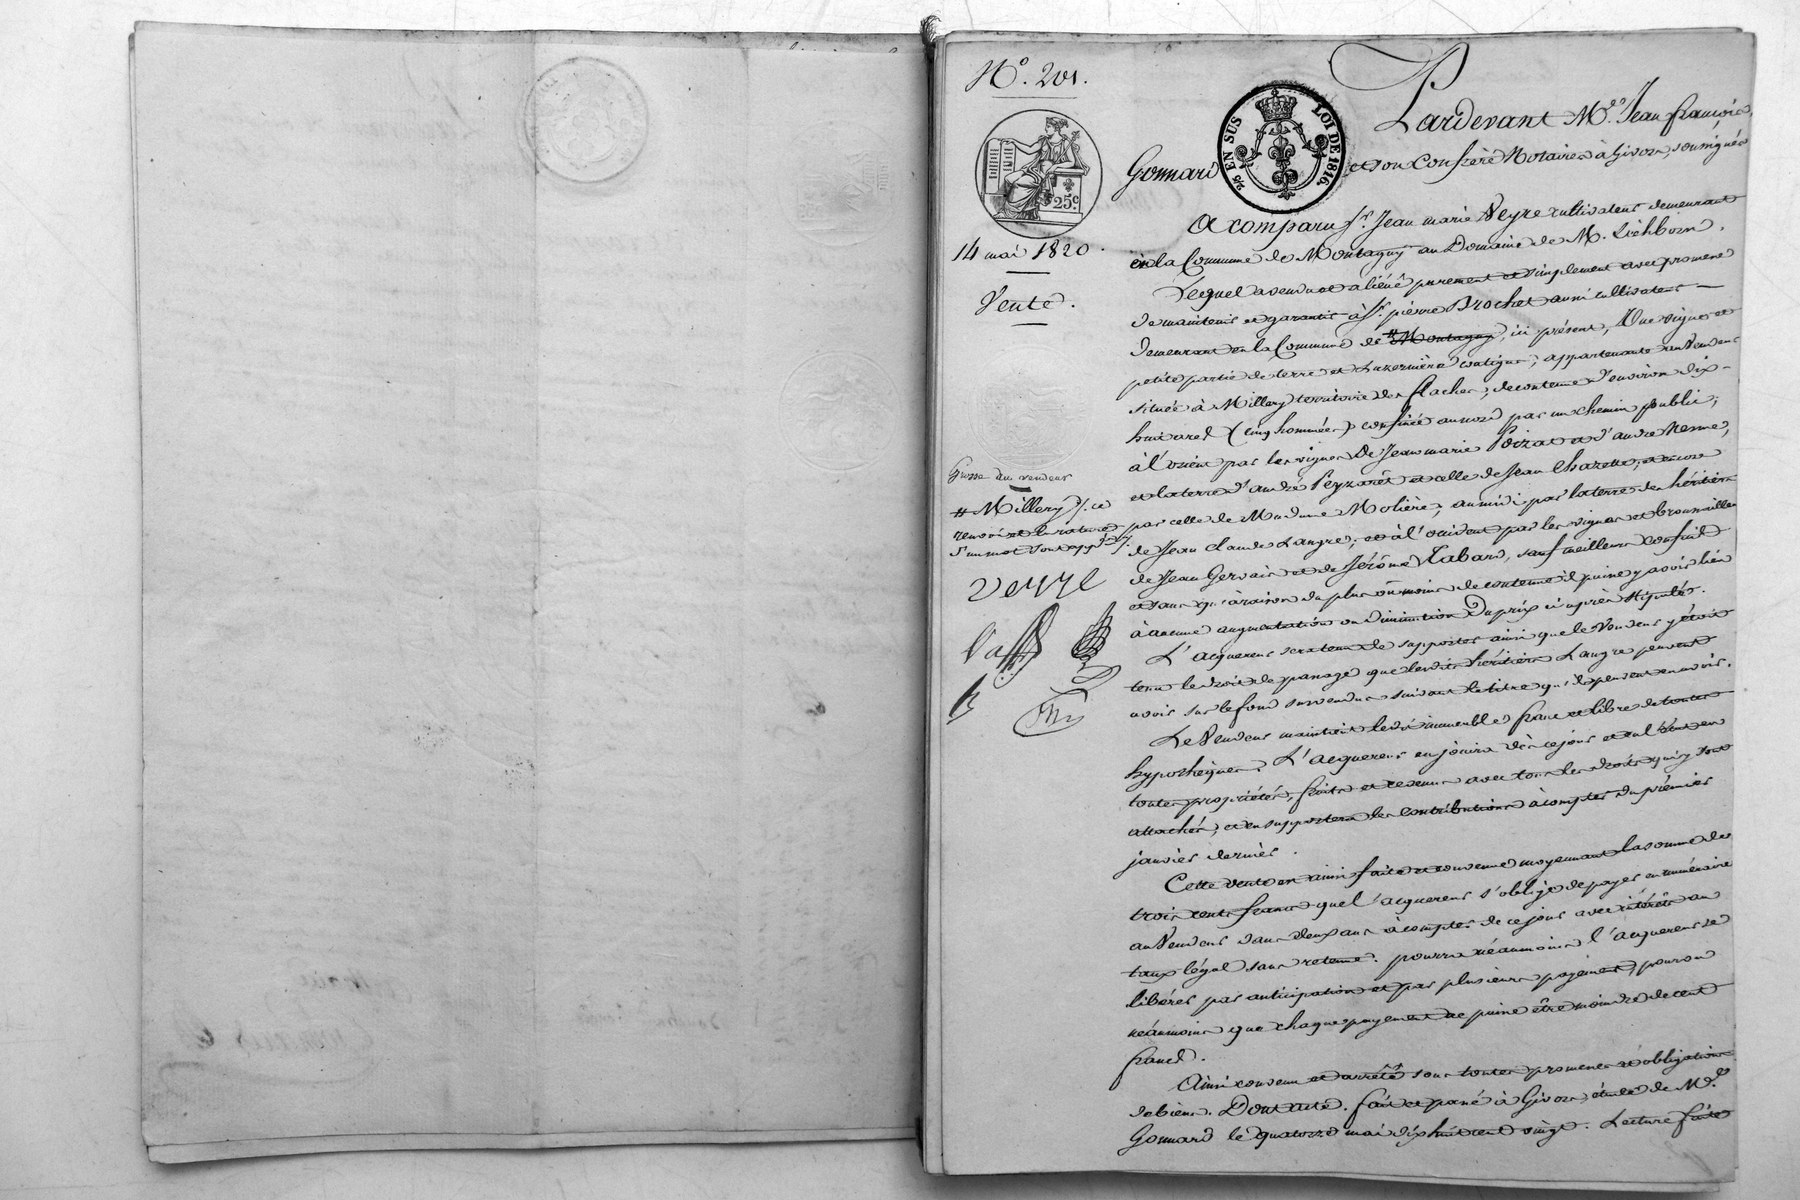 N.º 201.
25.c
2/0 EN SUS LOI DE 1816
14 mai 1820.
Vente.
Grosse au vendeur
# Millery /. ce
renvoi et la rature
d'un mot sont app.és /.
Veyre
Pardevant M.e Jean françois
Gonnard et son Confrère Notaires à Givors, soussignés
a comparu S.r Jean marie Veyre cultivateur demeurant
en la Commune de Montagny au Domaine de M.
Lequel a vendu et aliéné purement et simplement avec promesse
de maintenir et garantir à S.r pierre Brochet aussi cultivateur
demeurant en la Commune de # Montagny, ici présent, Une vigne et
petite partie de terre et Luzernière contigue, appartenante au Vendeur
située à Millery territoire des flaches, de contenue d'environ dix-
huit ares (cinq hommées) confinée au nord par un chemin public,
à l'orient par les vignes De Jean marie Poizat et d'andré
et la terre d'andré Peyzaret et celle de Jean Chazette, et encore
par celle de Madame Molière, au midi par la terre des héritiers
de Jean Claude Langre, et à l'occident par les vignes et broussailles
de Jean Gervais et de Jérôme Tabard, sauf meilleurs confins
et sans qu'à raison du plus ou moins de contenue il puisse y avoir lieu
à aucune augmentation ou diminution Du prix ci après stipulés.
L'acquereur sera tenu de supporter ainsi que le Vendeur y étoit
tenu le droit de passage que lesdits héritiers Langre peuvent
avoir sur le fond survendu suivant le titre qu'ils peuvent en avoir.
Le Vendeur maintient ledit immeuble franc et libre de toutes
hypothèques. L'acquereur en jouira dès ce jour et en
toutes propriétés, fruits et revenus avec tous les droits qui y sont
attachés, et en supportera les contributions à compter du premier
janvier dernier.
Cette vente est ainsi faite et convenue moyennant la somme de
trois cents francs que l'acquereur s'oblige de payer en numéraire
au Vendeur dans deux ans à compter de ce jour avec intérêts au
taux légal sans retenue. pourra néanmoins l'acquereur se
libérer par anticipation et par plusieurs payements, pourvu
néanmoins que chaque payement ne puisse être moindre de cent
francs.
Ainsi convenu et arrêté sous toutes promesses et obligations
de biens. Dont acte. fait et passé à Givors, étude de M.e
Gonnard le quatorze mai dix huit cent vingt. Lecture faite